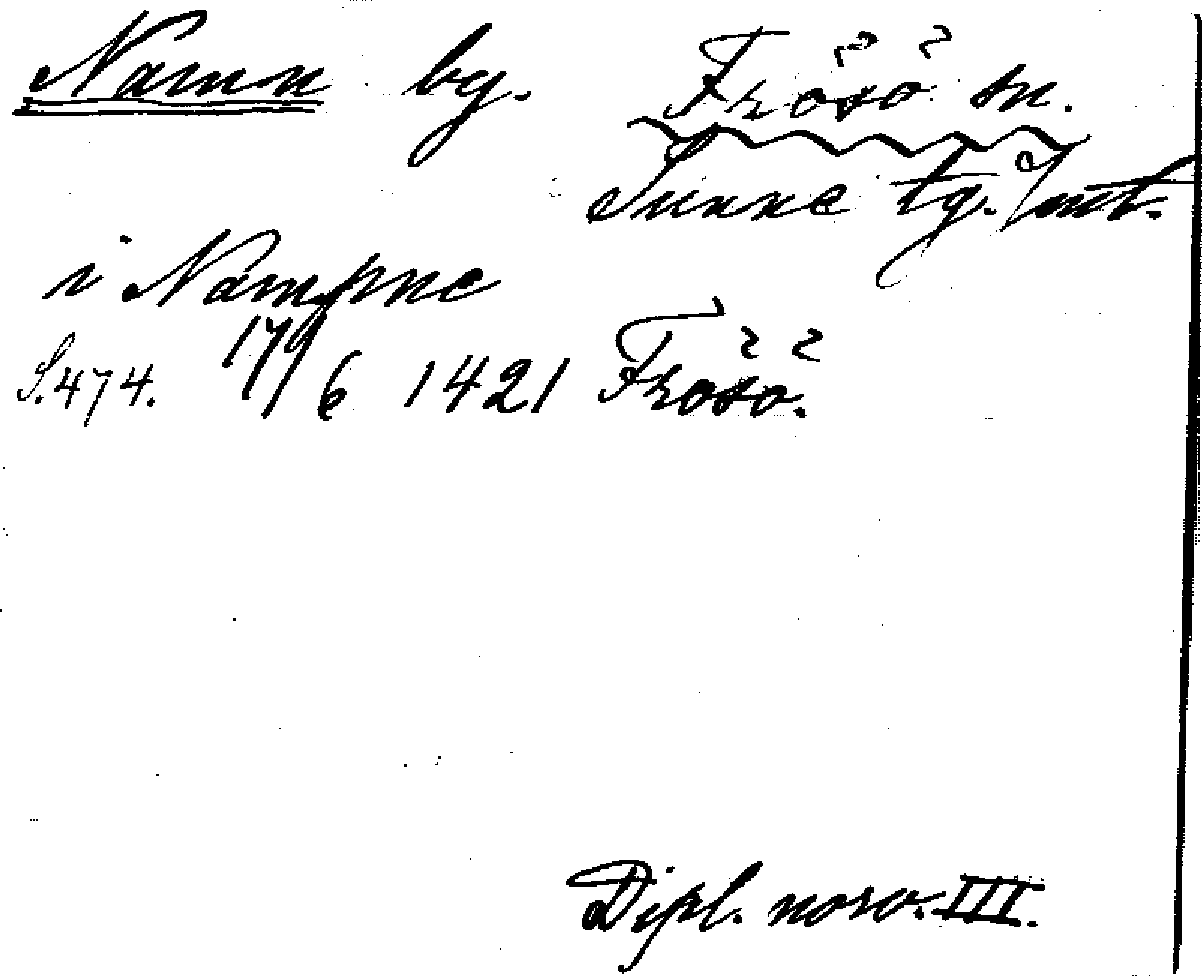 Namn by. Frösö sn.
Sunne tg. Jmt.
i Nampne
S. 474. 17/6 1421 Frösö.
Dipl. norv. III.